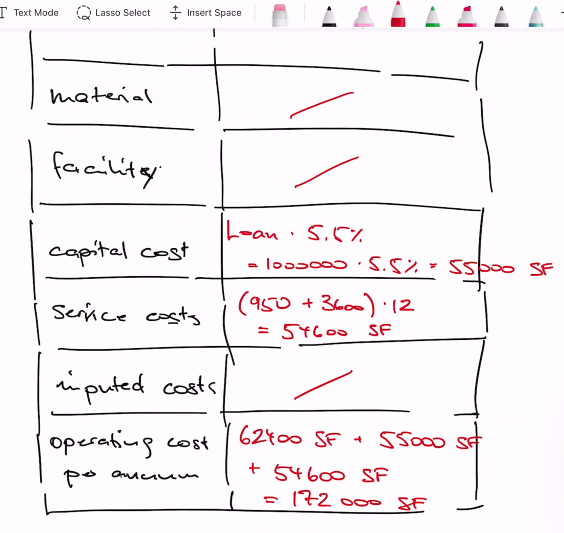 Text Mode Lasso Select Insert Space
material
facility
capital cost
Loan · 5.5%
= 1000000 · 5.5% = 55000 SF
service costs
(950 + 3600) · 12
= 54600 SF
inputed costs
operating cost
62400 SF + 55000 SF
pe annum
+ 54600 SF
= 172 000 SF